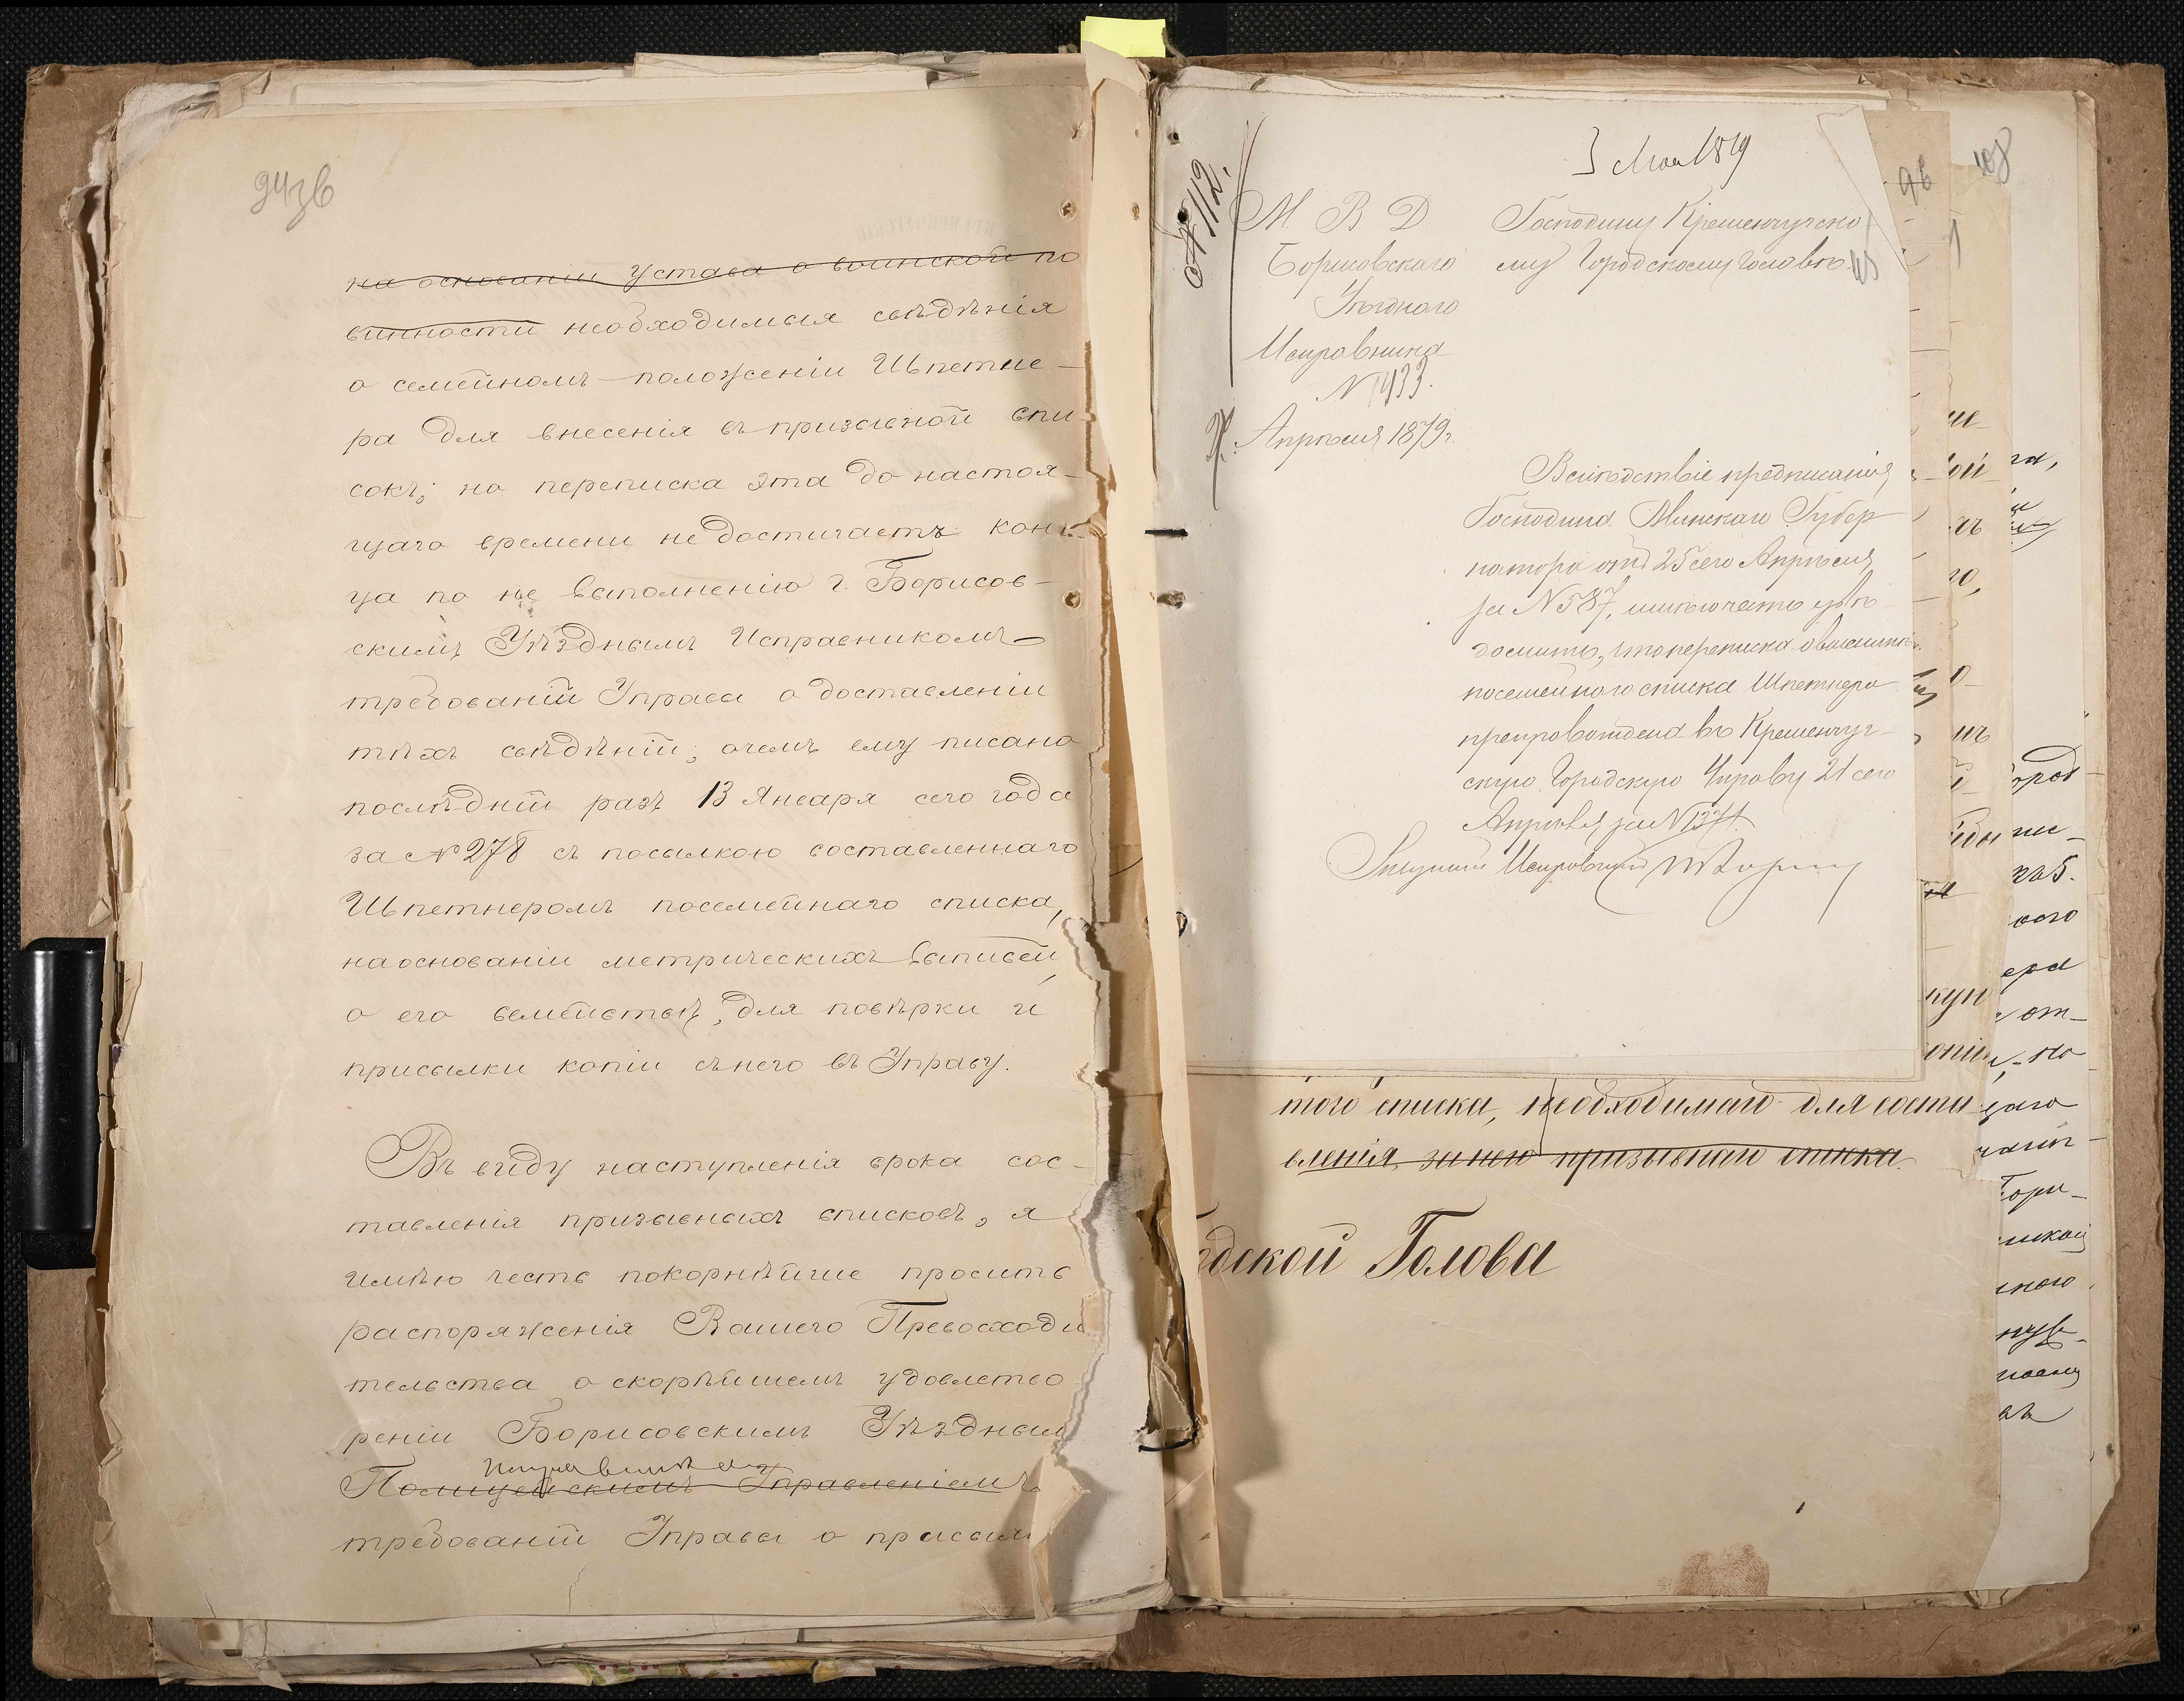 94зв
на основаніи Устава о воинской по
винности необходимыя свѣдѣнія
о семейномъ положеніи Шпетне-
ра для внесенія въ призывной спи-
сокъ; но переписка эта до настоя-
щаго времени не достигаетъ кон-
ца по не выполненію г. Борисов-
скимъ Уѣзднымъ Исправникомъ
требованій Управы о доставленіи
тѣхъ свѣдѣній; о чемъ ему писано
послѣдній разъ 13 Января сего года
за № 278 съ посылкою составленнаго
Шпетнеромъ посемейнаго списка,
на основаніи метрическихъ выписей
о его семействѣ, для повѣрки и
присылки копіи съ него въ Управу.
Въ виду наступленія срока сос-
тавленія призывныхъ списковъ, я
имѣю честь покорнѣйше просить
распоряженія Вашего Превосходи
тельства о скорѣйшемъ удовлетво
реніи Борисовскимъ Уѣзднымъ
Исправникомъ
Полицейскимъ Управленіемъ
требованій Управы о присыл
№ 112.
3 Мая 1879
96
108
М. В. Д.
Борисовскаго
Уѣзднаго
Исправника
№ 1433.
Апрѣля 1879 г.
Господину Кременчугско
му Городскому Головѣ
Вслѣдствіе предписанія
Господина Минскаго Губер
натора отъ 25 сего Апрѣля
за № 587, имѣю честь увѣ
домить, что переписка о высылкѣ
посемейного списка Шпетнера
препровождена въ Кременчуг-
скую Городскую Управу 21 сего
Апрѣля за № 1374.
Исправникъ
того списка, необходимаго для соста
вленія за нею призывнаго списка.
одской Голова